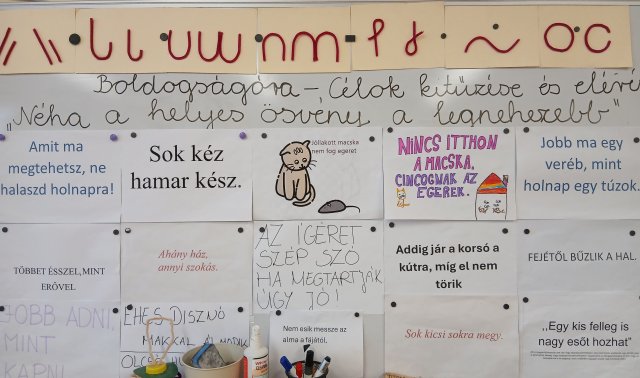 Boldogságóra - Célok kitűzése és
„Néha a helyes ösvény a legnehezebb"
Amit ma
megtehetsz, ne
halaszd holnapra!
Sok kéz
hamar kész.
Jóllakott macska
nem fog egeret
NINCS ITTHON
A MACSKA,
CINCOGNAK AZ
EGEREK.
Jobb ma egy
veréb, mint
holnap egy túzok.
TÖBBET ÉSSZEL, MINT
ERŐVEL
Ahány ház,
annyi szokás.
AZ ÍGÉRET
SZÉP SZÓ
HA MEGTARTJÁK
ÚGY JÓ!
Addig jár a korsó a
kútra, míg el nem
törik
FEJÉTŐL BŰZLIK A HAL.
JOBB ADNI,
MINT
KAPNI
ÉHES DISZNÓ
MAKKAL ÁLMODIK
Nem esik messze az
alma a fájától.
Sok kicsi sokra megy.
„Egy kis felleg is
nagy esőt hozhat"